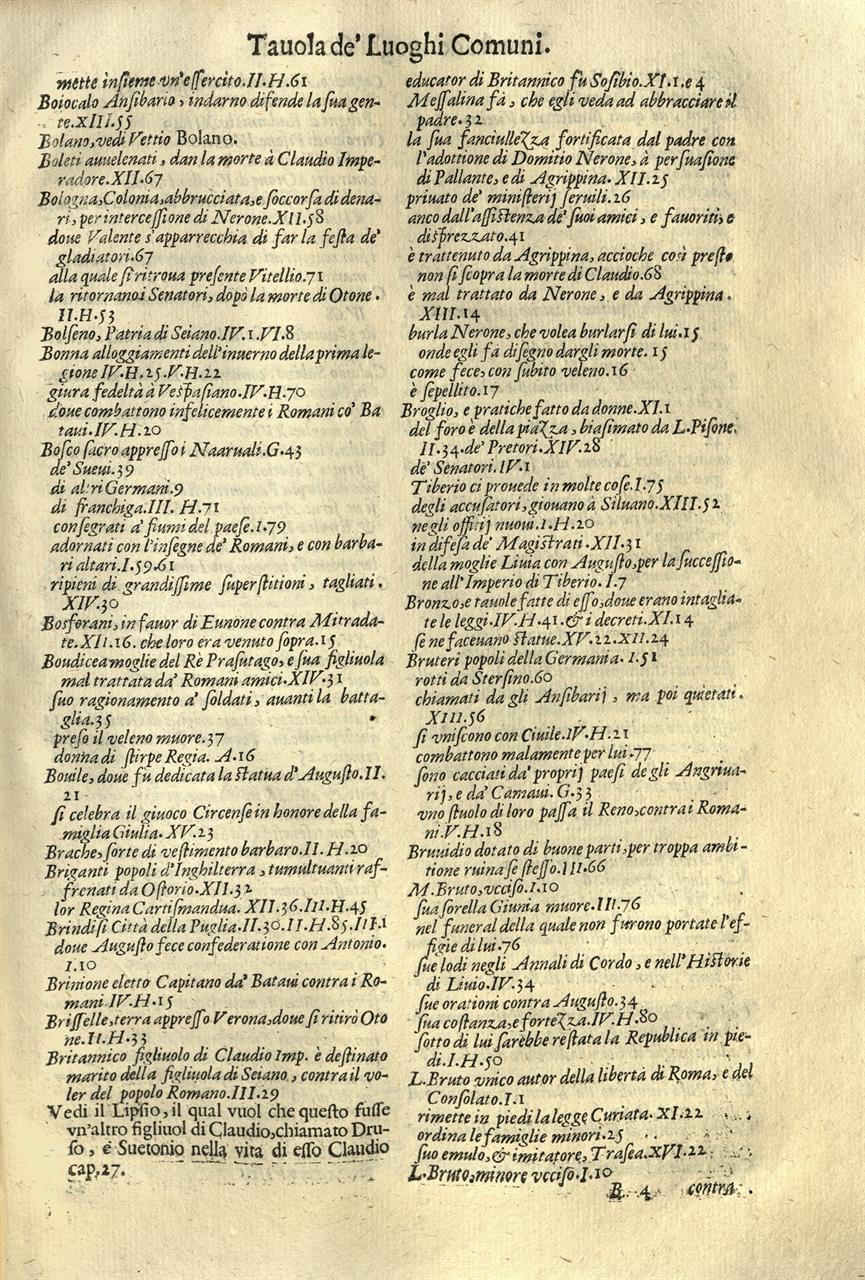 Tauola de' Luoghi Comuni.
mette insieme vn'essercito.II.H.61
Boiocalo Ansibario, indarno difende la sua gen-
te.XIII.55
Bolano, vedi Vettio Bolano.
Boleti auuelenati, dan la morte à Claudio Impe-
radore.XII.67
Bologna, Colonia, abbrucciata, e soccorsa di dena-
ri, per intercessione di Nerone.XII.58
doue Valente s'apparrecchia di far la festa de'
gladiatori.67
alla quale si ritroua presente Vitellio.71
la ritornano i Senatori, dopò la morte di Otone.
II.H.53
Bolseno, Patria di Seiano.IV.1.VI.8
Bonna alloggiamenti dell'inuerno della prima le-
gione IV.H.25.V.H.22
giura fedeltà à Vespasiano.IV.H.70
doue combattono infelicemente i Romani co' Ba
taui.IV.H.20
Bosco sacro appresso i Naaruali.G.43
de' Sueui.39
di altri Germani.9
di franchiga.III. H.71
consegrati a' fiumi del paese.I.79
adornati con l'insegne de' Romani, e con barba-
ri altari.I.59.61
ripieni di grandissime superstitioni, tagliati.
XIV.30
Bosforani, in fauor di Eunone contra Mitrada-
te.XII.16. che loro era venuto sopra.15
Boudicea moglie del Rè Prasutago, e sua figliuola
mal trattata da' Romani amici.XIV.31
suo ragionamento a' soldati, auanti la batta-
glia.35
preso il veleno muore.37
donna di stirpe Regia. A.16
Bouile, doue fù dedicata la statua d'Augusto.II.
21
si celebra il giuoco Circense in honore della fa-
miglia Giulia. XV.23
Brache, sorte di vestimento barbaro.II. H.20
Briganti popoli d'Inghilterra, tumultuanti raf-
frenati da Ostorio.XII.32
lor Regina Cartismandua. XII.36.III.H.45
Brindisi Città della Puglia.II.30.II.H.85.III.1
doue Augusto fece confederatione con Antonio.
I.10
Brinione eletto Capitano da' Bataui contra i Ro-
mani.IV.H.15
Brisselle, terra appresso Verona, doue si ritirò Oto
ne.II.H.33
Britannico figliuolo di Claudio Imp. è destinato
marito della figliuola di Seiano, contra il vo-
ler del popolo Romano.III.29
Vedi il Lipsio, il qual vuol che questo fusse
vn'altro figliuol di Claudio, chiamato Dru-
so, è Suetonio nella vita di esso Claudio
cap.27.
educator di Britannico fù Sosibio.XI.1.e 4
Messalina fà, che egli veda ad abbracciare il
padre.32
la sua fanciullezza fortificata dal padre con
l'adottione di Domitio Nerone, à persuasione
di Pallante, e di Agrippina. XII.25
priuato de' ministerij seruili.26
anco dall'assistenza de' suoi amici, e fauoriti, e
disprezzato.41
è trattenuto da Agrippina, accioche così presto
non si scopra la morte di Claudio.68
è mal trattato da Nerone, e da Agrippina.
XIII.14
burla Nerone, che volea burlarsi di lui.15
onde egli fà disegno dargli morte. 15
come fece, con subito veleno.16
è sepellito.17
Broglio, e pratiche fatto da donne.XI.1
del foro è della piazza, biasimato da L.Pisone.
II.34.de' Pretori.XIV.28
de' Senatori.IV.1
Tiberio ci prouede in molte cose.I.75
degli accusatori, giouano à Siluano.XIII.52
negli offitij nuoui.I.H.20
in difesa de' Magistrati.XII.31
della moglie Liuia con Augusto, per la successio-
ne all'Imperio di Tiberio.I.7
Bronzo, e tauole fatte di esso, doue erano intaglia-
te le leggi.IV.H.41.& i decreti.XI.14
se ne faceuano statue.XV.22.XII.24
Bruteri popoli della Germania. I.51
rotti da Stersino.60
chiamati da gli Ansibarij, ma poi quietati.
XIII.56
si vniscono con Ciuile.IV.H.21
combattono malamente per lui.77
sono cacciati da' proprij paesi de gli Angriua-
rij, e da' Camaui. G.33
vno stuolo di loro passa il Reno, contra i Roma-
ni.V.H.18
Bruuidio dotato di buone parti, per troppa ambi-
tione ruina se stesso.III.66
M.Bruto, vcciso.I.10
sua sorella Giunia muore.III.76
nel funeral della quale non furono portate l'ef-
figie di lui.76
sue lodi negli Annali di Cordo, e nell'Historie
di Liuio.IV.34
sue orationi contra Augusto.34
sua costanza, e fortezza.IV.H.80
sotto di lui sarebbe restata la Republica in pie-
di.I.H.50
L.Bruto vnico autor della libertà di Roma, e del
Consolato.I.1
rimette in piedi la legge Curiata. XI.22
ordina le famiglie minori.25
suo emulo, & imitatore, Trasea.XVI.22
L.Bruto, minore vcciso.I.10
B 4 contra